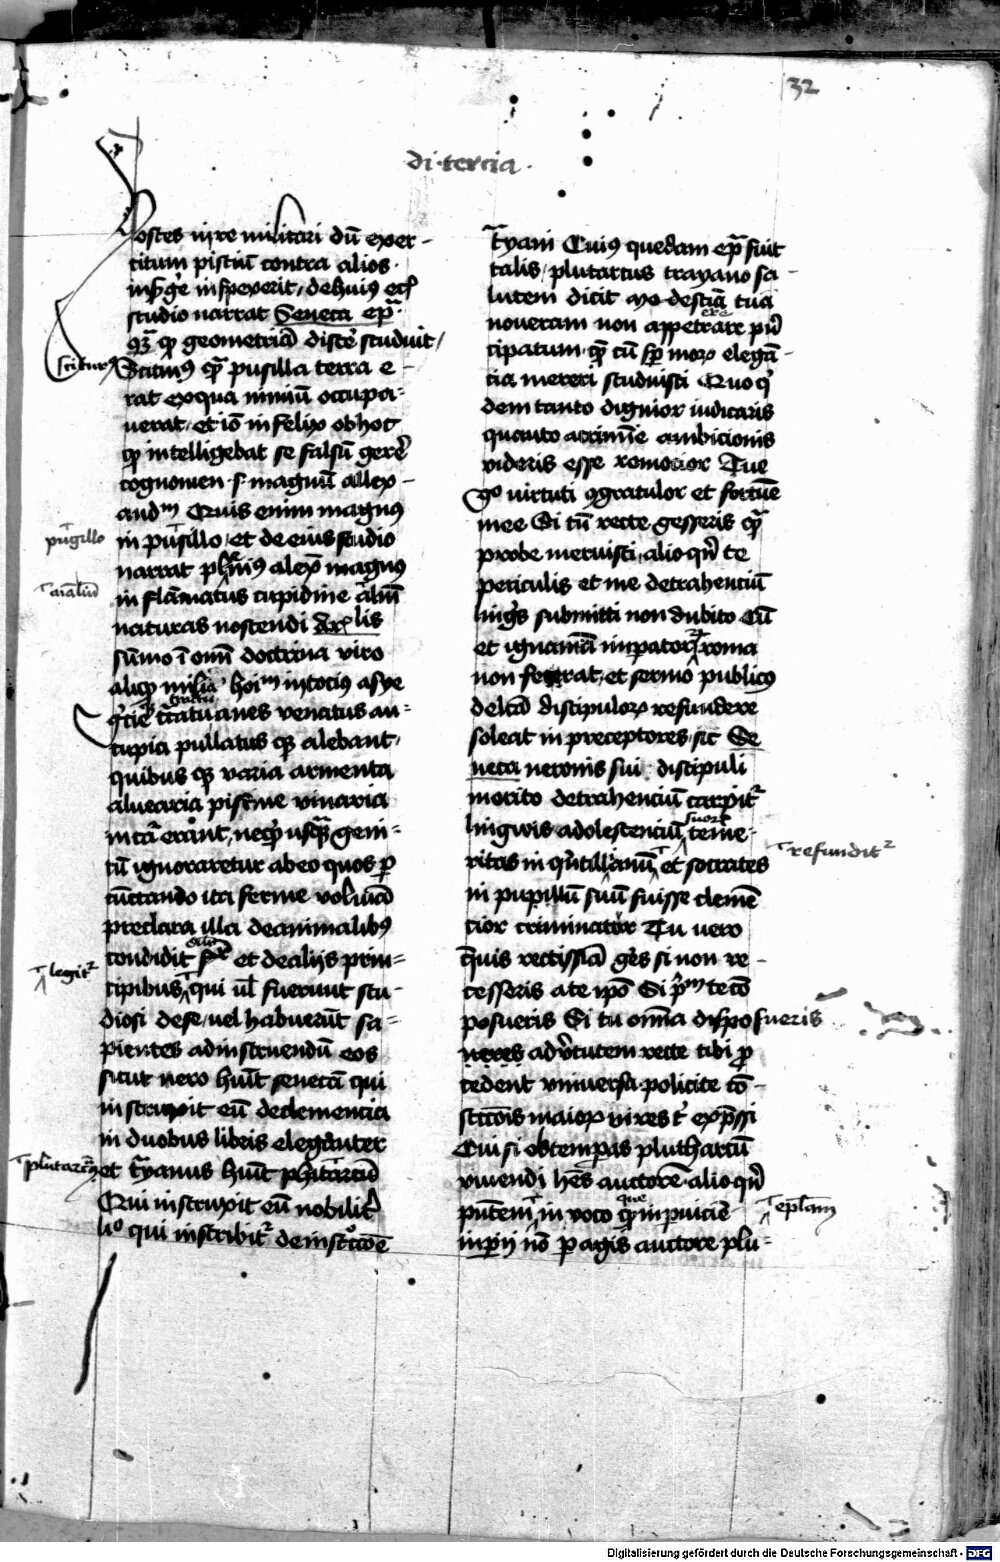 32
di · tercia ·
hostes in re militari dū exer-
citum pisciū contra alios
de huius eciā
studio narrat Seneca ep̄a
qz q geometriā discē studuit
Scimꝰ q̄ pusilla terra e-
rat ex qua nimiū occupa-
uerat et iō infelix ob hoc
q̄ intelligebat se falsū gerē
cognomen · s · magnū allex-
andm Quis enim magnus
in pusillo et de eius studio
narrat plīnius alexā magnus
inflāmatus cupidine aīaliū
naturas noscendi Arxlis
sūmo ī omī doctrina viro
aliqƺ milia hoīm in tocius asye
grecie tractu canes venatus au-
cupia pullatus qƺ alebant
quibus qƺ varia armenta
aluearia piscine viuaria
in cura erant neqƺ usqƺ geni-
tū ignoraretur ab eo quos p
cūctando ita ferme volumā
preclara illa de animalibꝰ
condidit et de aliis prin-
cipibus qui ul fuerunt stu-
diosi de se uel habuerūt sa-
pientes ad instruendū eos
sicut nero huīt senecā qui
instruxit eū de clemencia
in duobus libris eleganter
et trayanus huīt plutarcū
Qui instruxit eū nobilit̄
lio qui inscribitꝛ de instōne
pugillo
aīaliū
legitꝛ
plutarcū
Trayani Cuiꝰ quedam epā fuit
talis plutarcus trayano sa-
lutem dicit Modestiā tua
noueram non appetere prī
cipatum quē tū sp̄ moꝝ elegā-
cia mereri studuisti Quo qͥ
dem tanto dignior iudicaris
quanto a crimīe ambicionis
videris esse remocior Tue
gͦ virtuti ꝯgratulor et fortūe
mee Si tū recte gesseris q̄
probe meruisti alioqn̄ te
periculis et me detrahenciū
linguis submitti non dubito Cū
et ignauiā imperatoꝝ roma
non ferat et sermo publicꝰ
delcā discipuloꝝ refundere
soleat in preceptores sic Se
neca neronis sui discipuli
merito detrahenciū carpitꝛ
linguis adolescenciū suorū teme-
ritas in qͥntilianū et socrates
in pupillū suū fuisse clemē
cior criminatur Tu vero
q̄uis rectissiā geres si non re-
cesseris a te ipō Si prm te cō
posueris Si tu omīa disposueris
ad virtutem recte tibi p
cedent vniuersa policite cō-
stōnis maioꝝ vires t expssi
Cui si obtemperas plutharcū
viuendi hēs auctorē alioqn̄
pntem in voco q̄ in pernicīe
imperii nō pergis auctore plu-
refunditꝛ
eplam
Digitalisierung gefördert durch die Deutsche Forschungsgemeinschaft - DFG